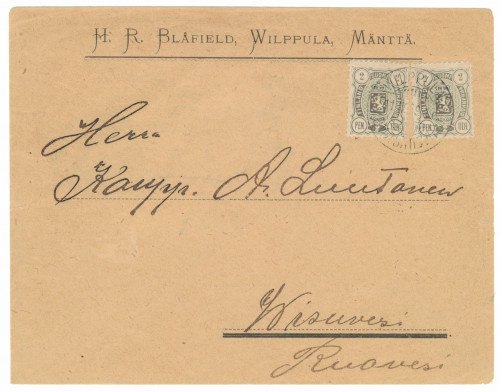 H. R. BLÅFIELD, WILPPULA, MÄNTTÄ.
2 2
PEN PEN
Herra
Kaupp. A. Luutonen
Wisuvesi
Ruovesi